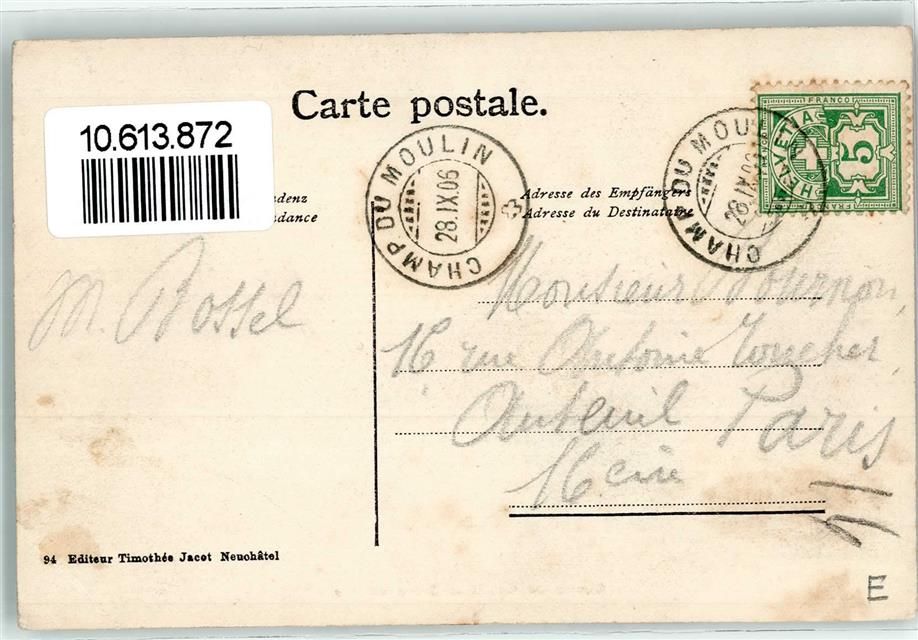 Carte postale.
10.613.872
denz
dance
CHAMP DU MOULIN
28.IX.06
Adresse des Empfängers
Adresse du Destinataire
CHAMP DU MOULIN
28.IX.06
FRANCO
HELVETIA
5
FRANCO
M. Bossel
Monsieur Fournon
16 rue Antoine
Auteuil Paris
16
94 Editeur Timothée Jacot Neuchâtel
E